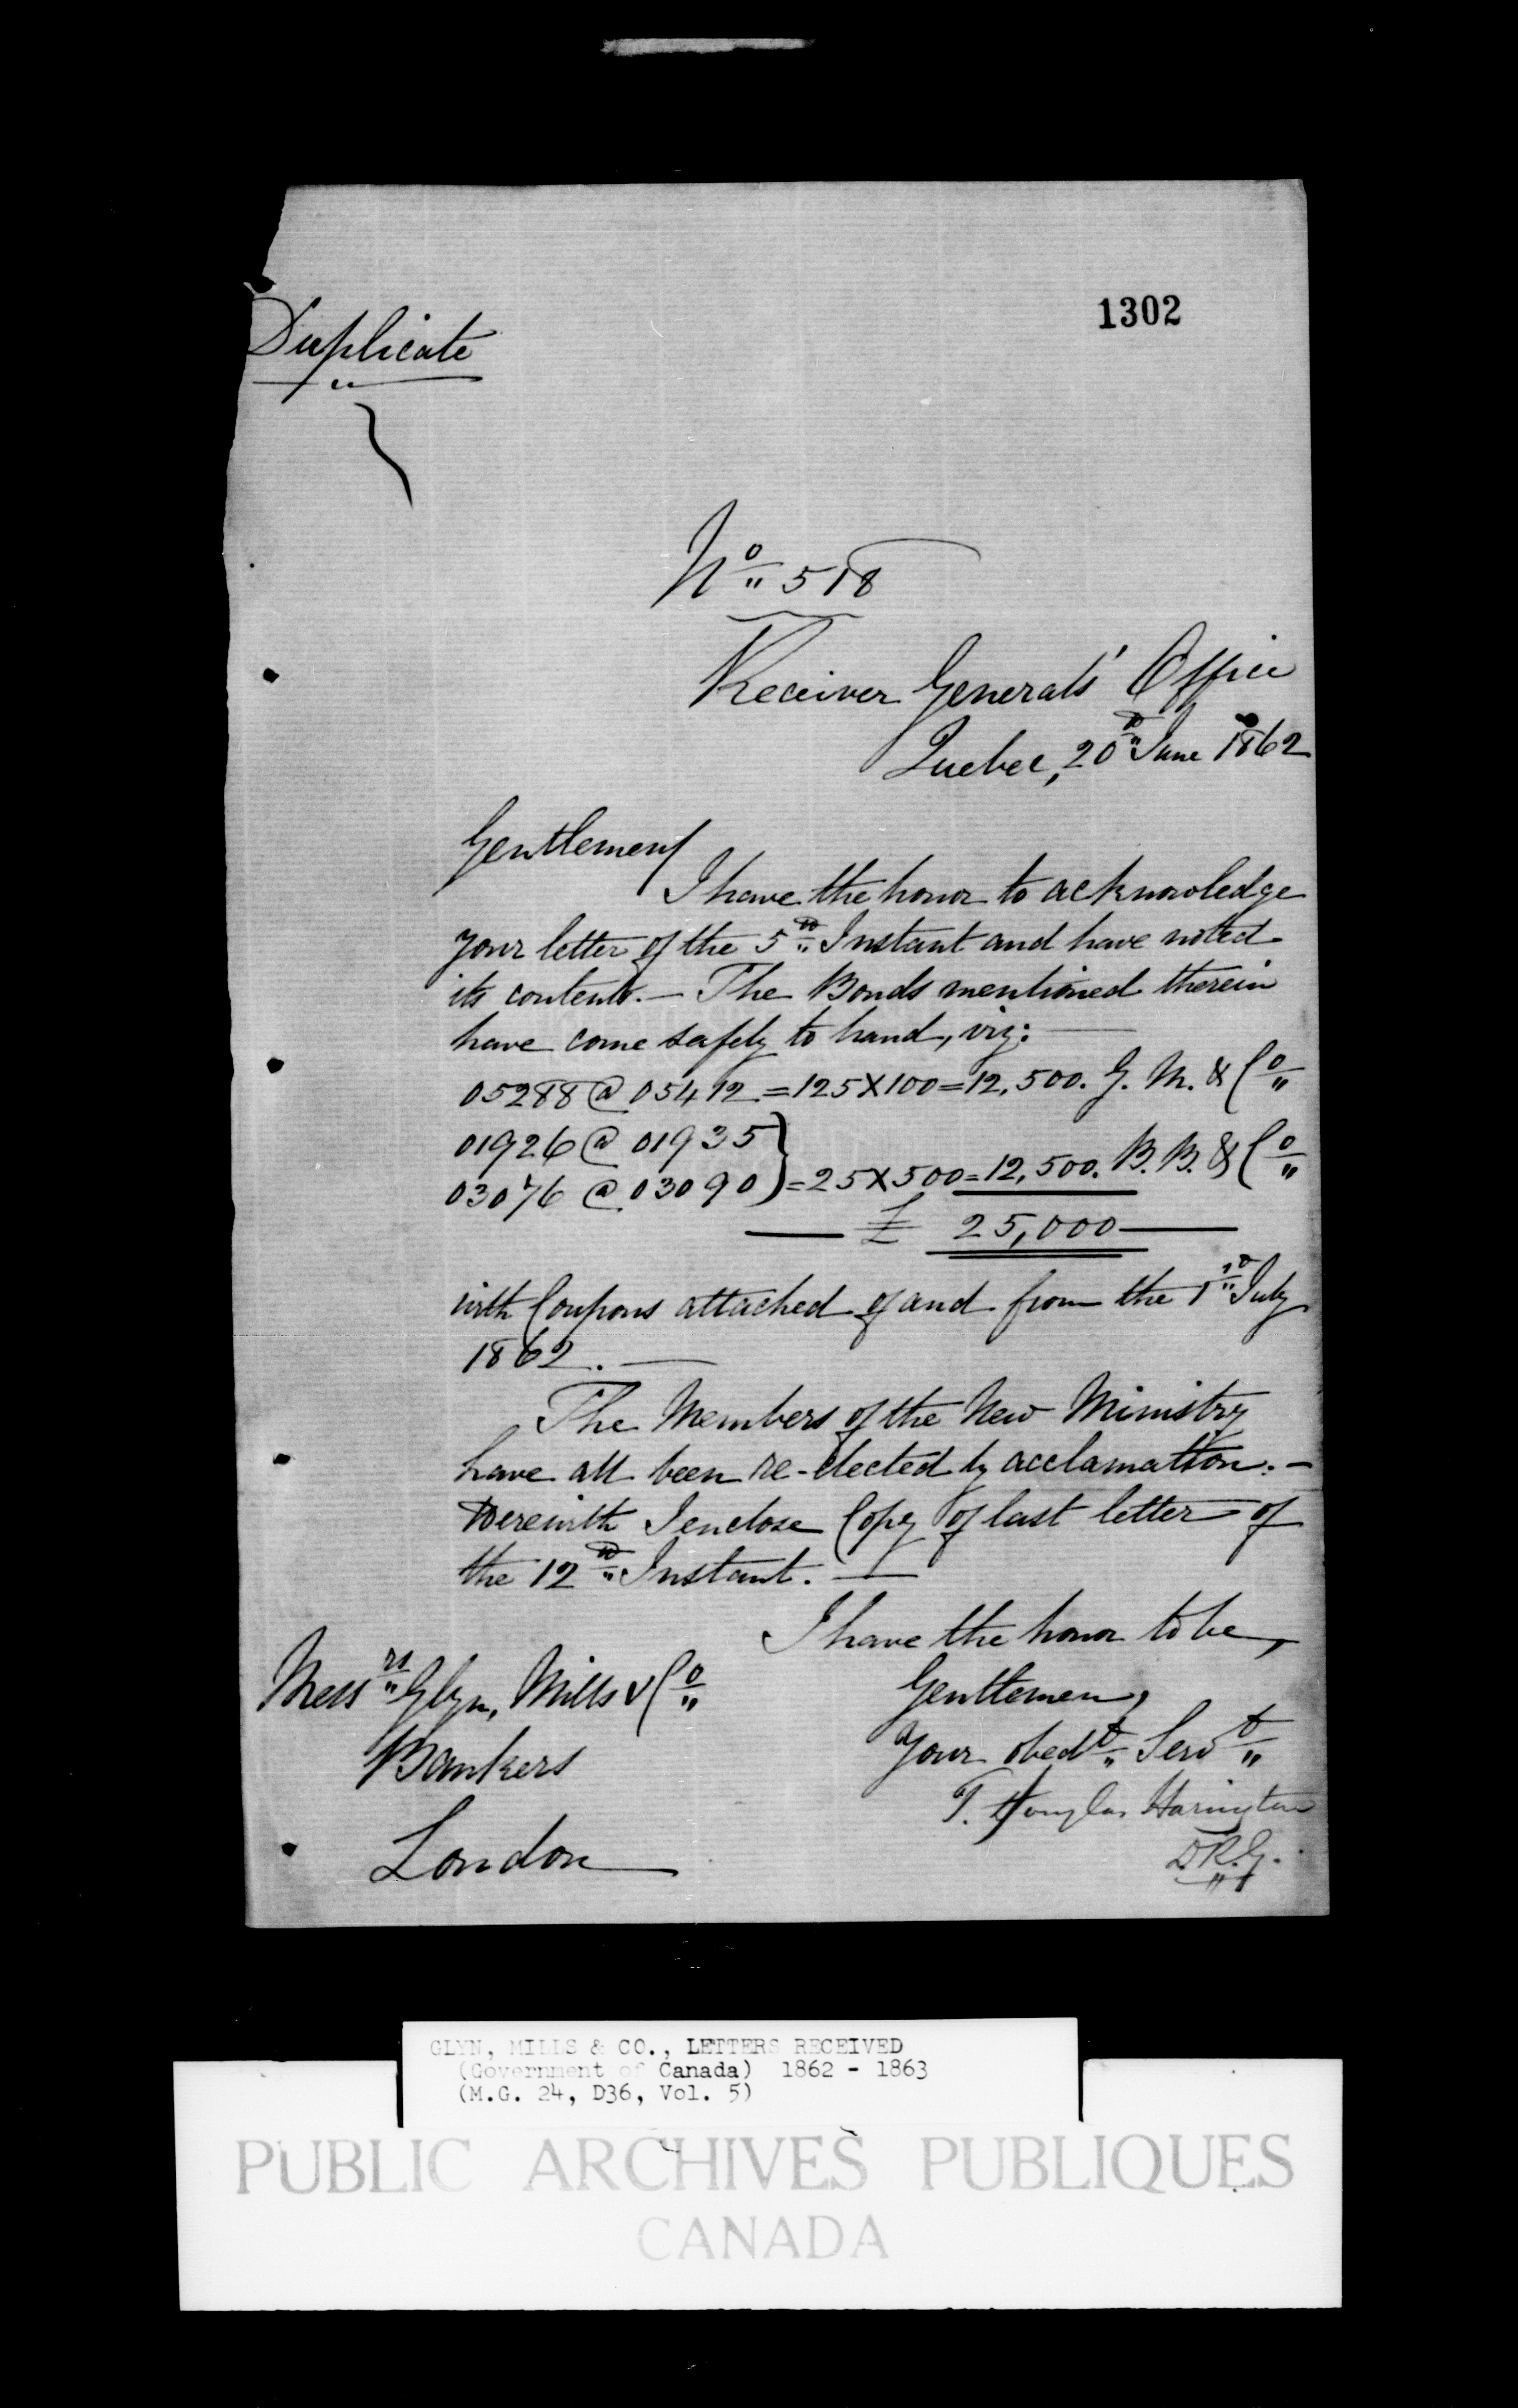 1302
Duplicate
No 518
Receiver Generals' Office
Quebec, 20th June 1862
Gentlemen/
I have the honor to acknowledge
your letter of the 5th Instant and have noted
its contents. — The Bonds mentioned therein
have come safely to hand, viz: —
05288 @ 05412 = 125 X 100 = 12,500. G. M. & Co
01926 @ 01935 }
03076 @ 03090 } = 25 X 500 = 12,500. B. B. & Co
— £ 25,000 —
with Coupons attached of and from the 1st July
1862. —
The Members of the New Ministry
have all been re-elected by acclamation. —
Herewith I enclose Copy of last letter of
the 12th Instant. —
I have the honor to be,
Gentlemen,
Your obedt Servt
T. Douglas Harington
D.R.G.
Messrs Glyn, Mills & Co
Bankers
London
GLYN, MILLS & CO., LETTERS RECEIVED
(Government of Canada) 1862 - 1863
(M.G. 24, D36, Vol. 5)
PUBLIC ARCHIVES PUBLIQUES
CANADA